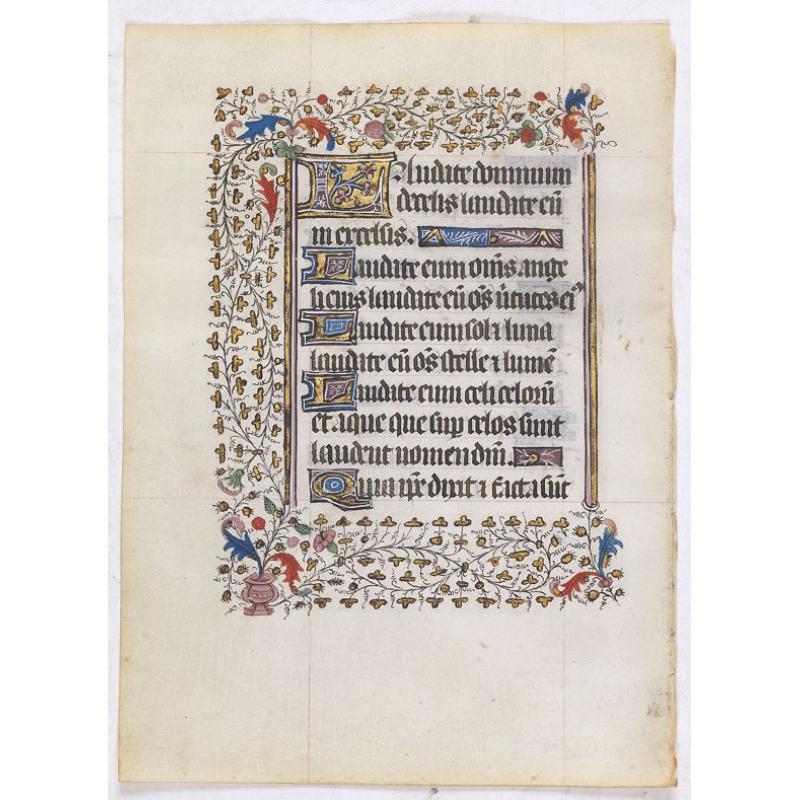 Laudate dominum
de celis laudate eū
in excelsis.
Laudate eum om̄s ange
li eius laudate eū om̄s v̄tutes eiꝰ
Laudate eum sol ⁊ luna
laudate eū om̄s stelle ⁊ lumē
Laudate eum celi celorū
et aque que suꝑ celos sunt
laudent nomen dn̄i.
Quia ip̄e dixit ⁊ facta sūt